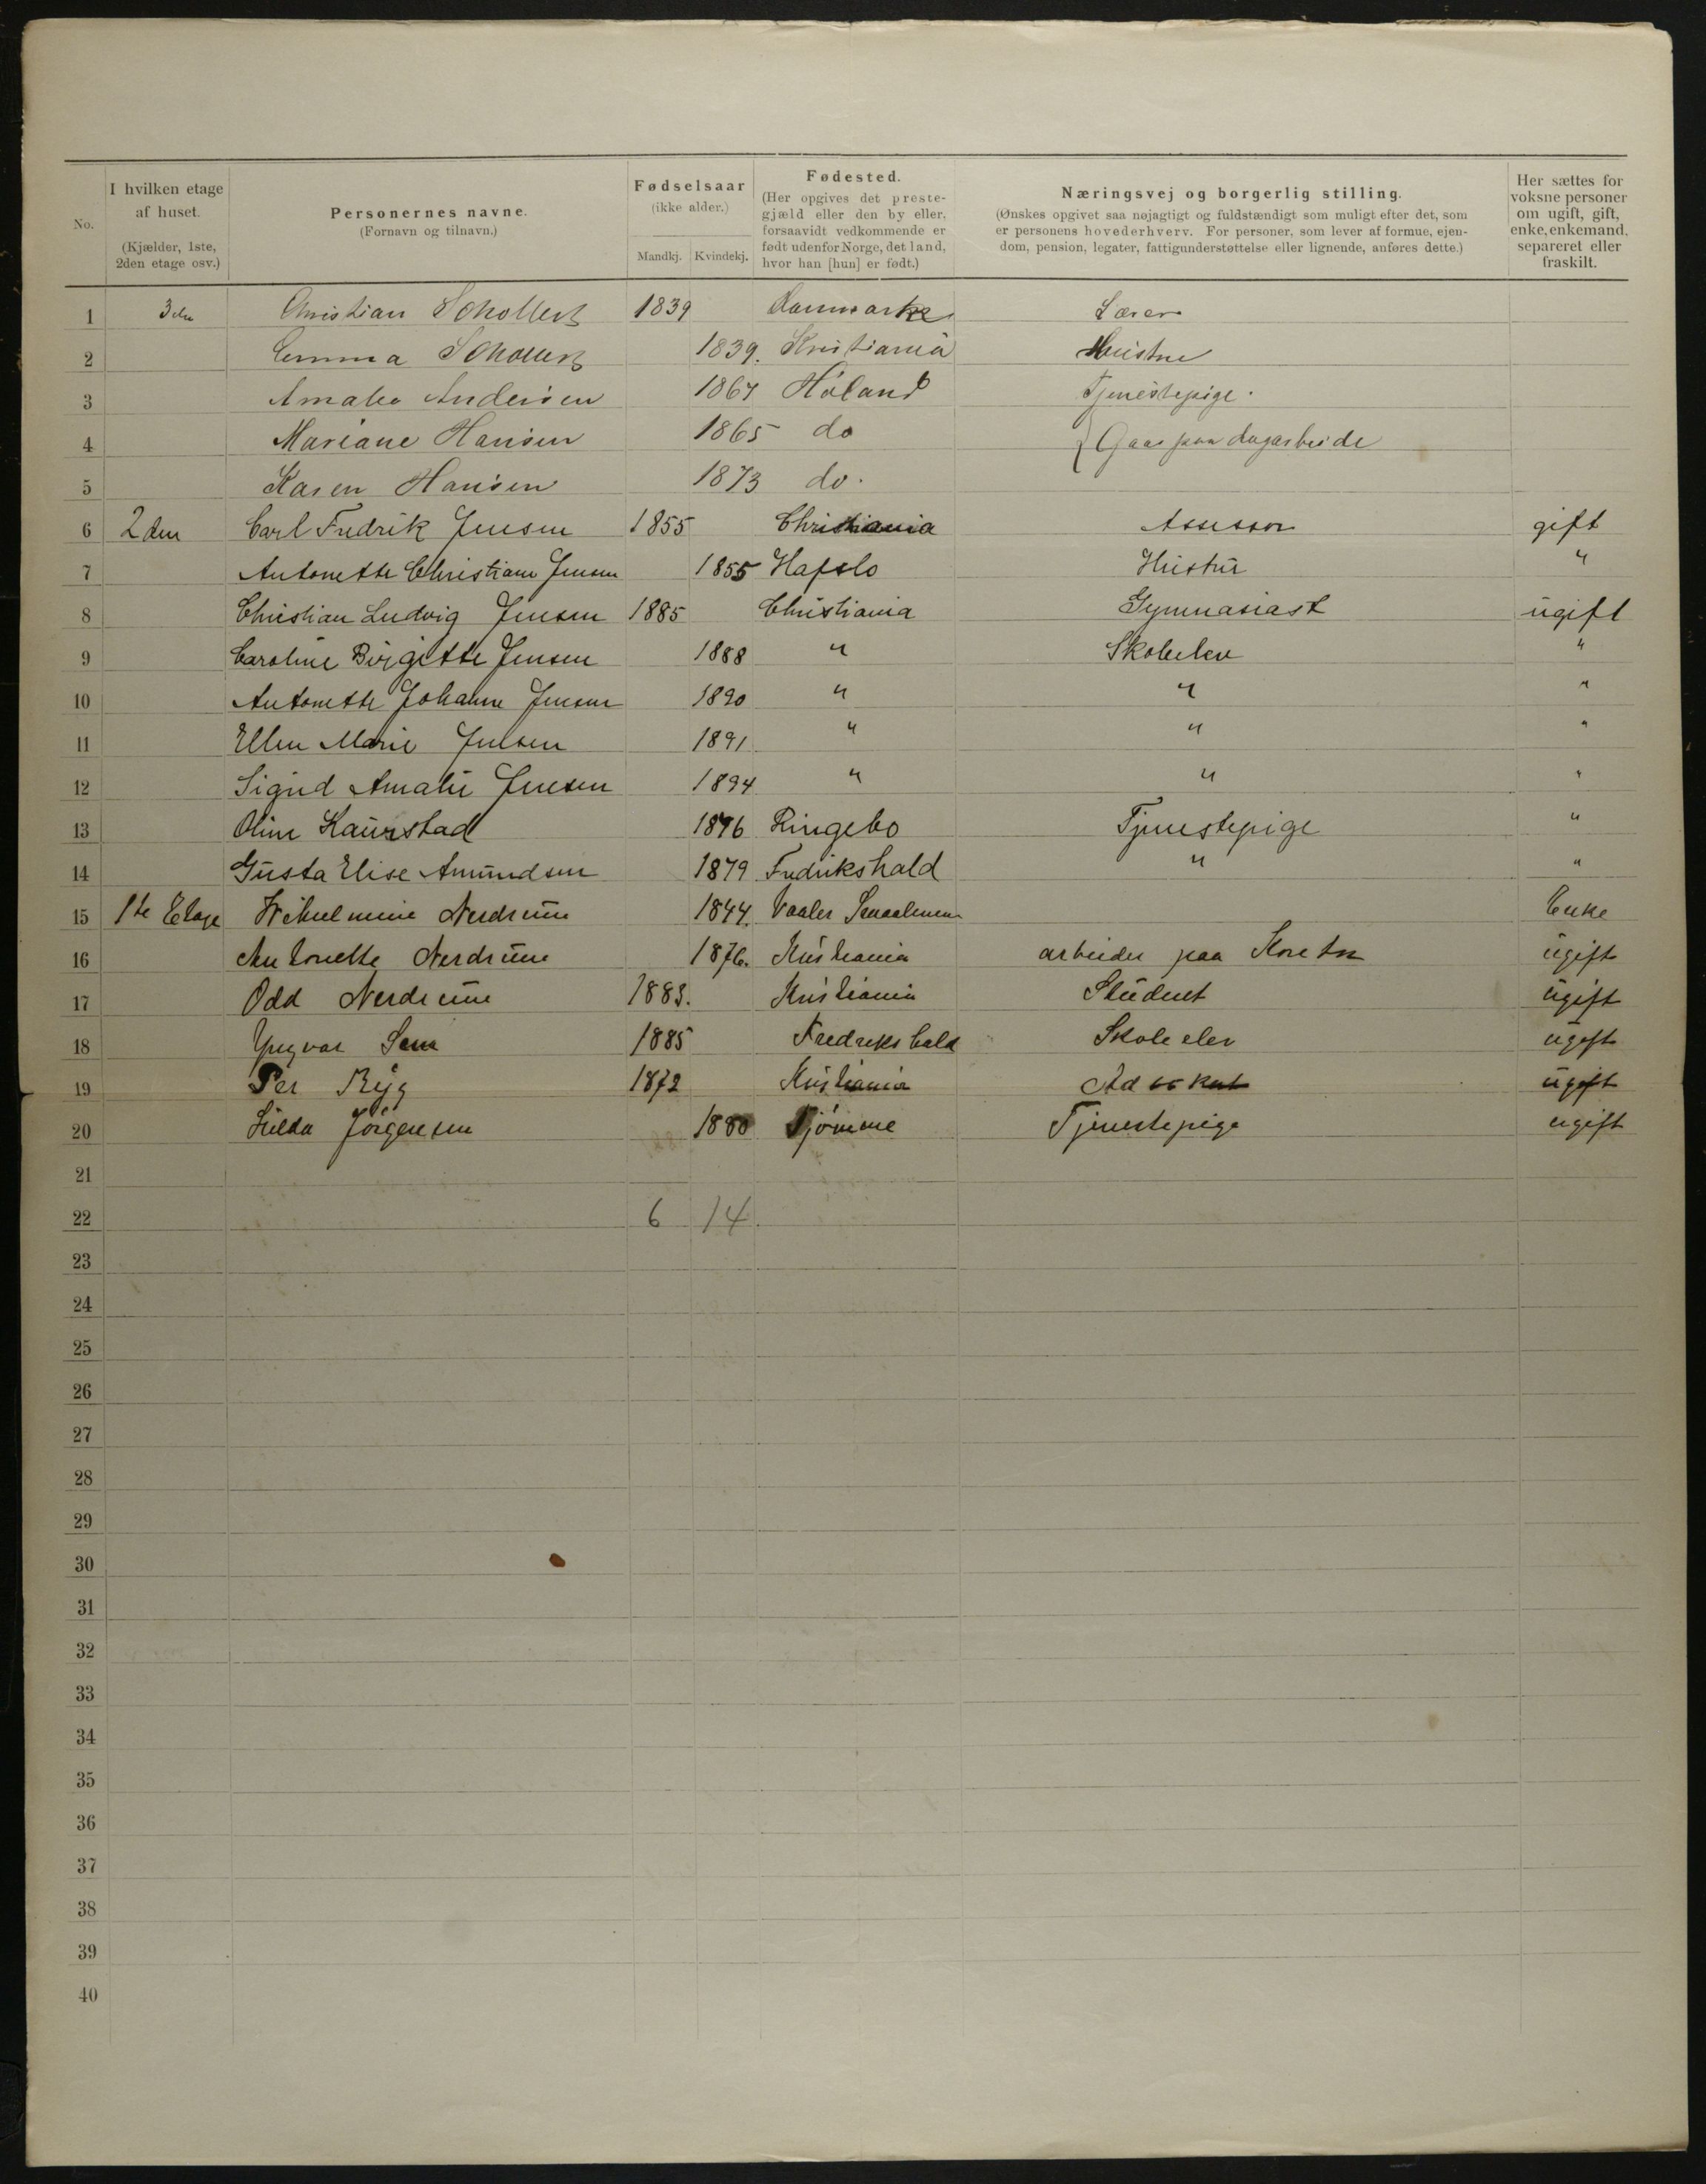 No.
I hvilken etage af huset. (Kjælder, 1ste, 2den etage osv.)
Personernes navne. (Fornavn og tilnavn.)
Fødselsaar (ikke alder.) Mandkj. Kvindekj.
Fødested. (Her opgives det prestegjæld eller den by eller, forsaavidt vedkommende er født udenfor Norge, det land, hvor han [hun] er født.)
Næringsvej og borgerlig stilling. (Ønskes opgivet saa nøjagtigt og fuldstændigt som muligt efter det, som er personens hovederhverv. For personer, som lever af formue, ejendom, pension, legater, fattigunderstøttelse eller lignende, anføres dette.)
Her sættes for voksne personer om ugift, gift, enke, enkemand, separeret eller fraskilt.
1 3die Christian Schollert 1839 Danmark Lærer
2 Emma Schollert 1839. Kristiania Hustru
3 Andersen Høland Tjenestepige.
4 Mariane Hansen 1865 do Gaar paa dagarbeide
5 Karen Hansen 1873 do.
6 2den Carl Fredrik Jensen 1855 Christiania Assessor gift
7 Antonette Christiane Jensen 1855 Hafslo Hustru "
8 Christian Ludvig Jensen 1885 Christiania Gymnasiast ugift
9 Caroline Birgitte Jensen 1888 " Skoleelev "
10 Antonette Johanne Jensen 1890 " " "
11 Ellen Marie Jensen 1891 " " "
12 Sigrid Amalie Jensen 1894 " " "
13 Oline Kaurstad Ringebo Tjenestepige "
14 Gusta Elise Amundsen 1879 Fredrikshald " "
15 1te Etage Wilhelmine Nerdrum 1844. Vaaler Smaalenene Enke
16 Antonette Nerdrum 1876. Kristiania arbeider paa Kontor ugift
17 Odd Nerdrum 1883. Kristiania Student ugift
18 Yngvar 1885 Fredrikshald Skoleelev ugift
19 Per Ryg 1872 Kristiania Advokat ugift
20 Hilda Jørgensen 1880 Tjømme Tjenestepige ugift
21
22 6 14
23
24
25
26
27
28
29
30
31
32
33
34
35
36
37
38
39
40